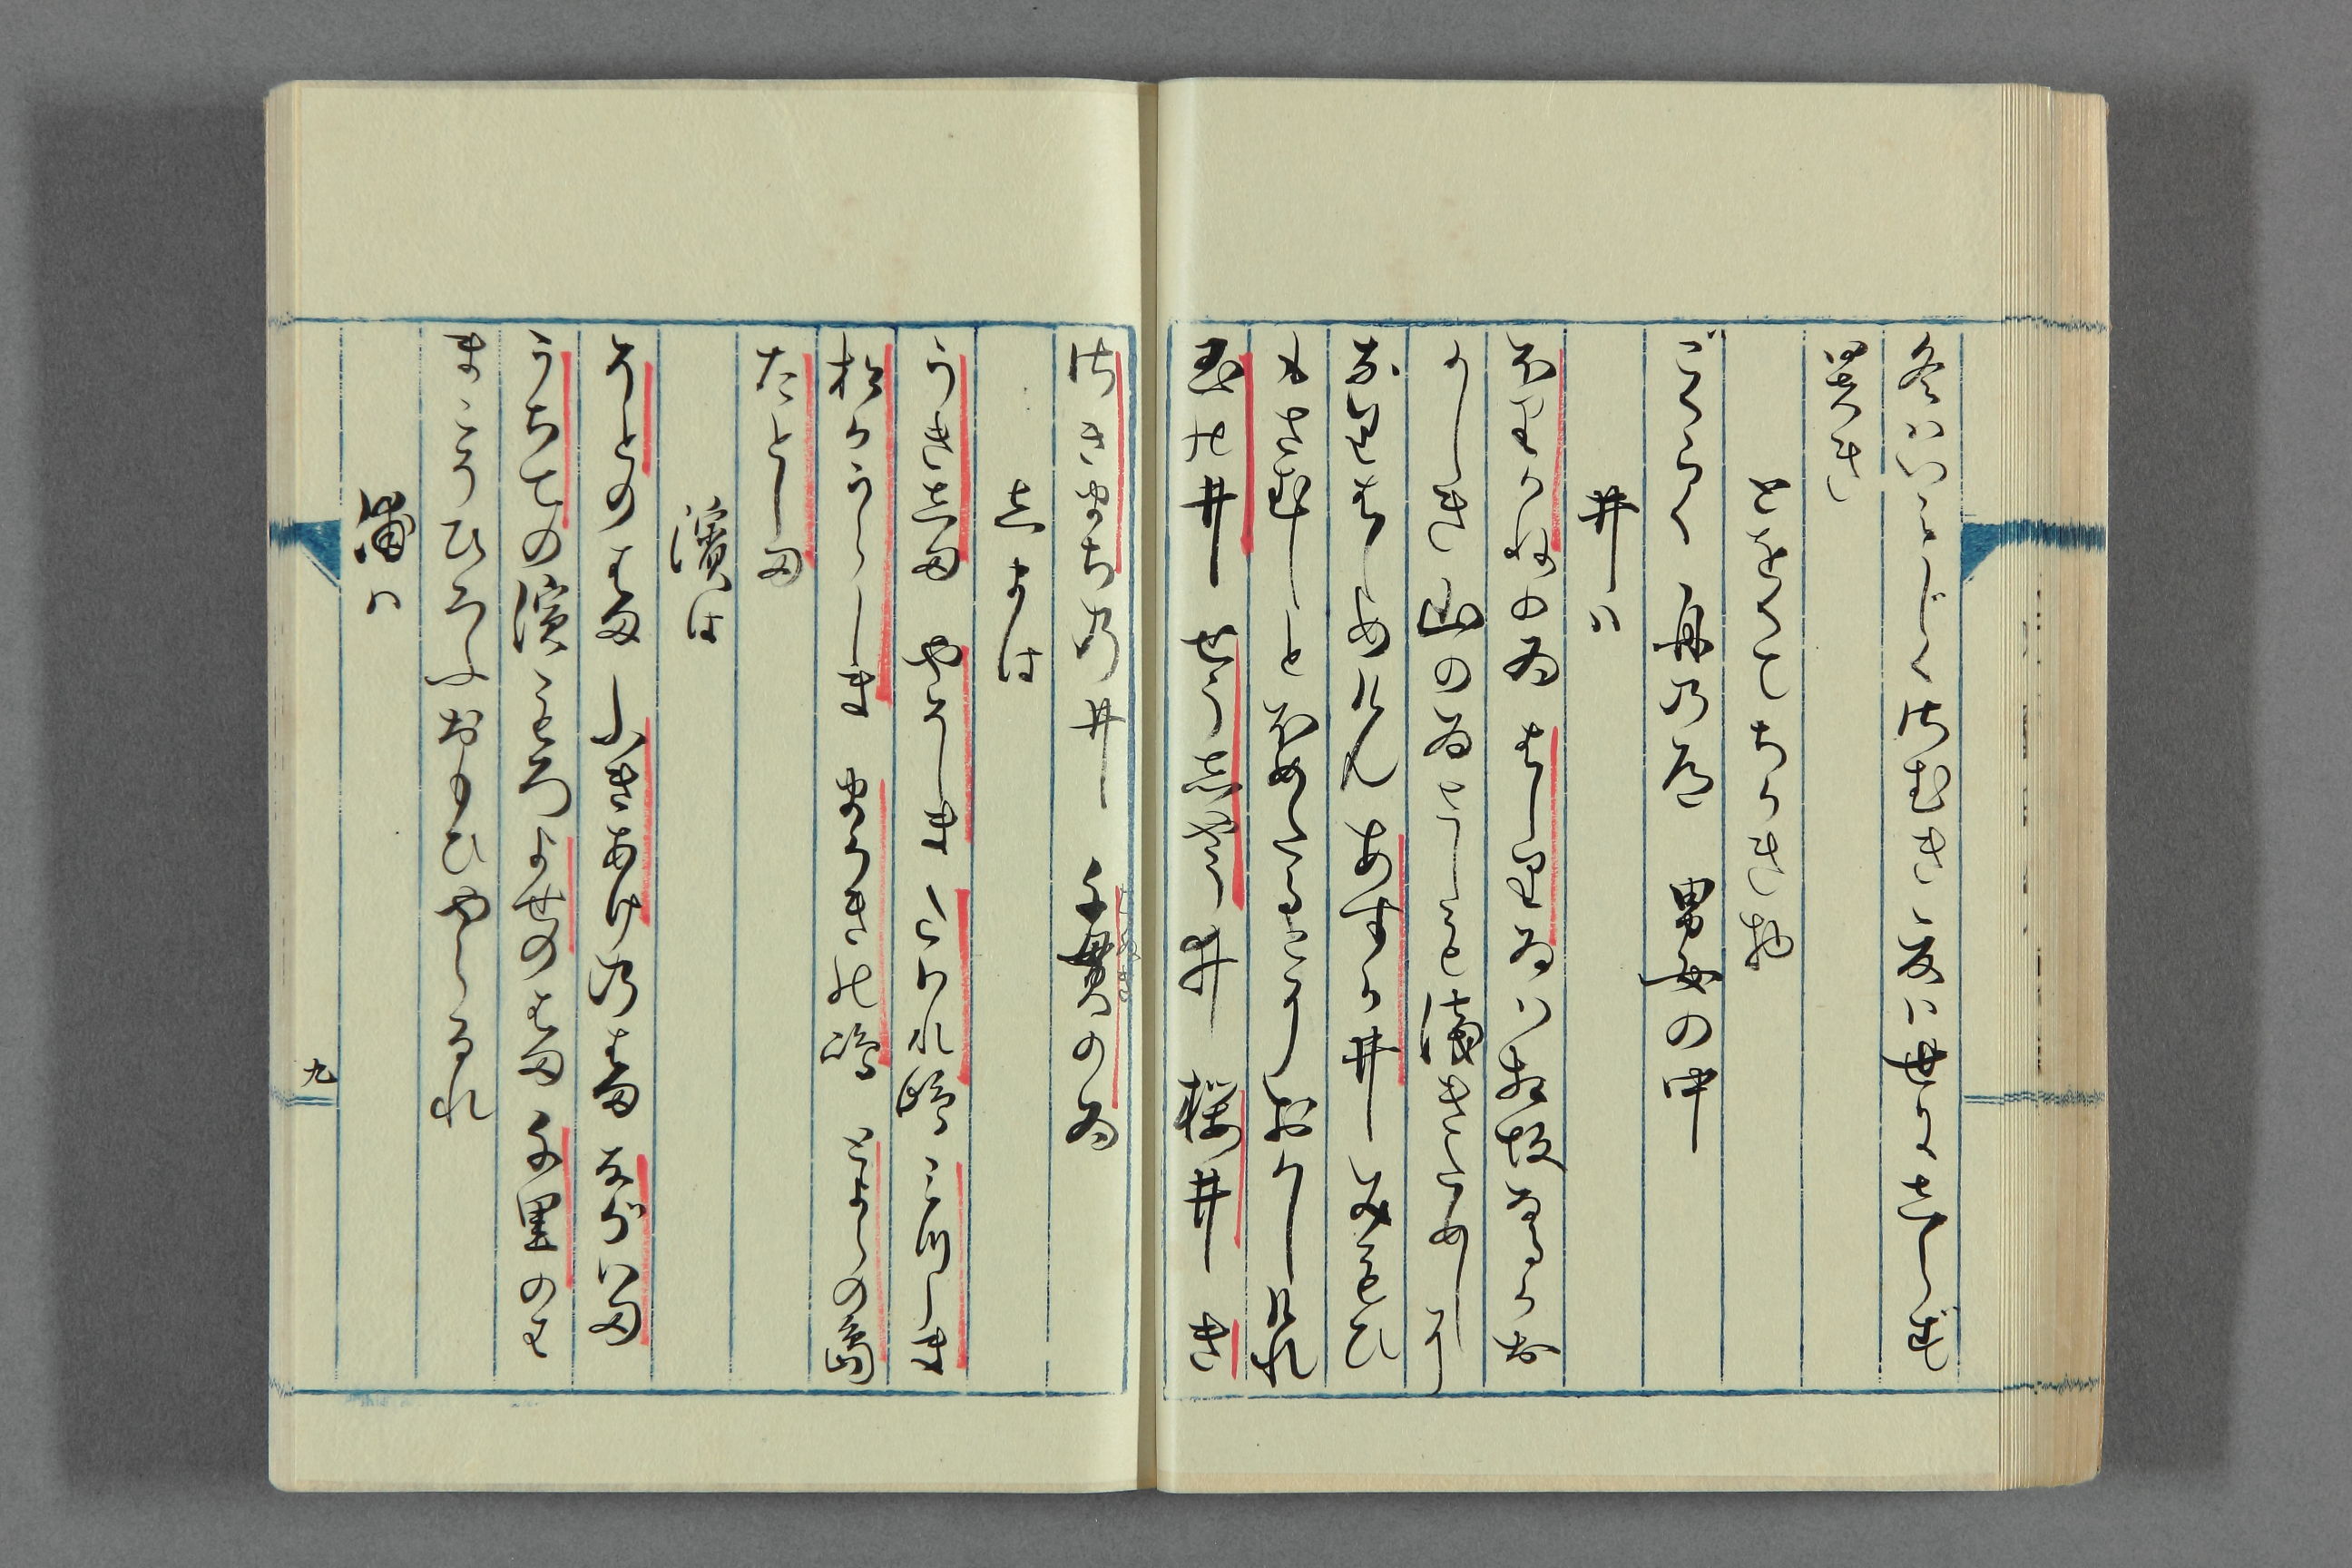 冬ハいみじくさむき夏ハ世にしらず
あつき
とをくてちかき物
ごくらく 舟の道 男女の中
井ハ
ほりかねの為 はしり為ハ相坂なるかお
かしき山の為さしも浅きためしに
なりはじめけんあすか井みもひ
もさむしとほめたるこそおかしけれ
玉の井 せう志やう井 桜井 き
さきまちの井 千貫の為
志まは
うき志ま やそしま たはれ嶋 みつしま
松かうらしま まかきの嶋 とよらの嶋
たとしま
濱は
そとのはま ふきあけのはま ながハま
うちての濱 もろよせのはま 千里のは
まこそひろふおもひやらるれ
浦ハ
九